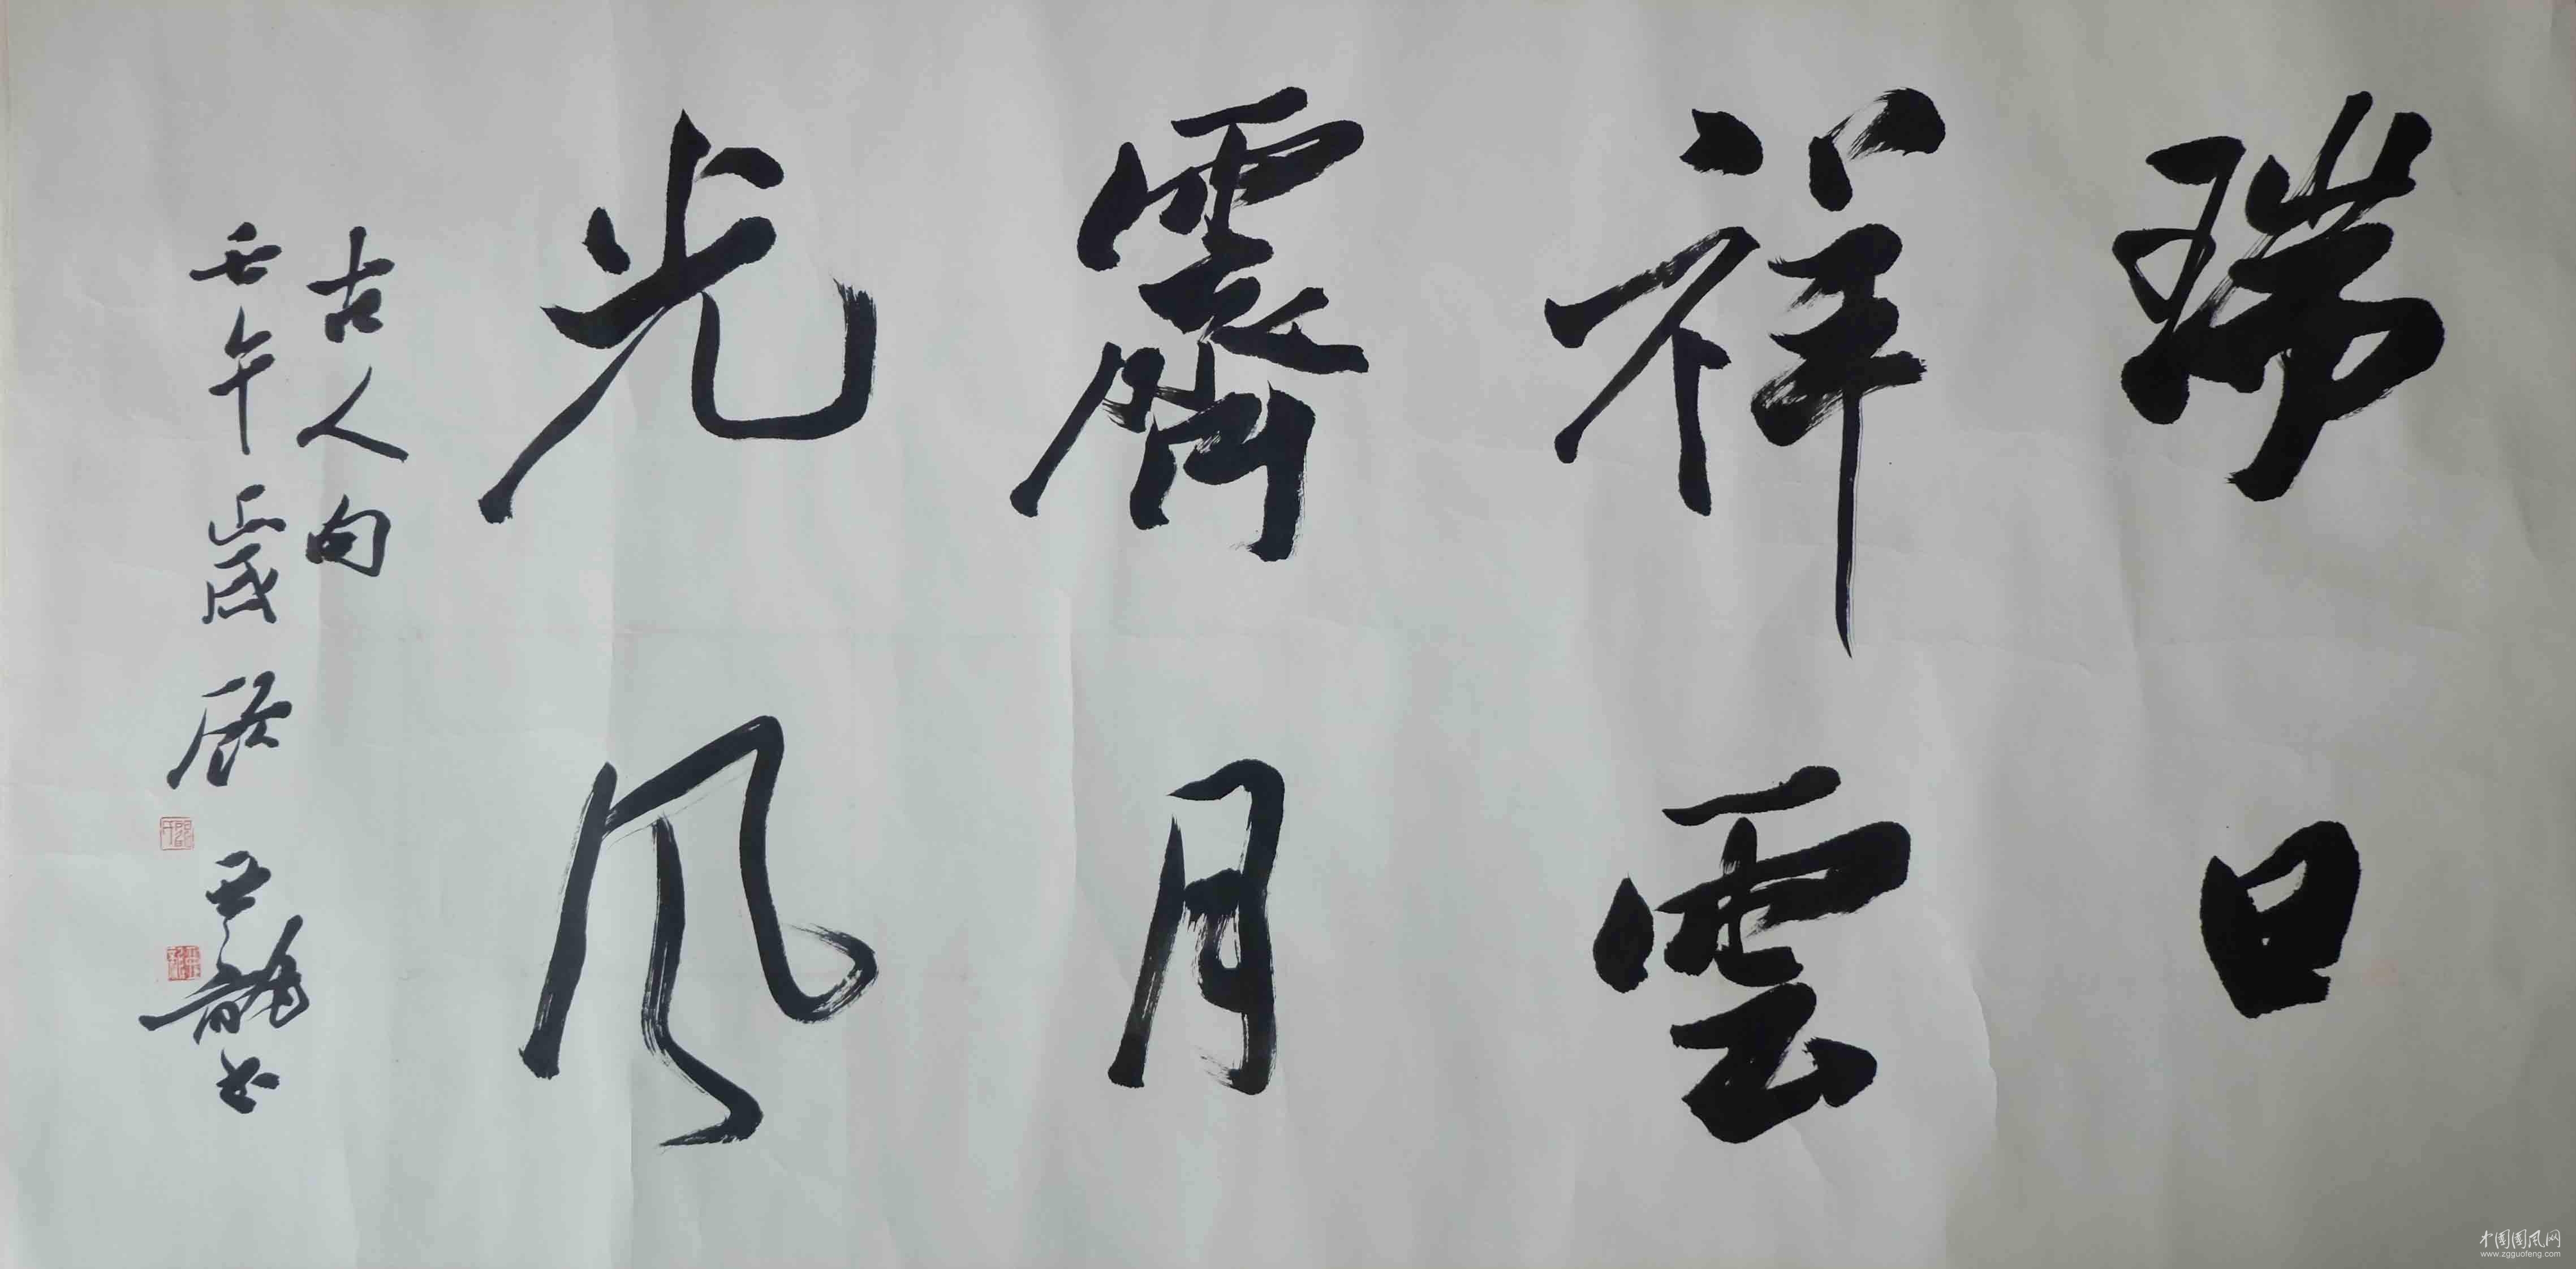 瑞日
祥雲
霽月
光风
古人句
壬午歲啟
雲龍书
中国国风网
www.zgguofeng.com